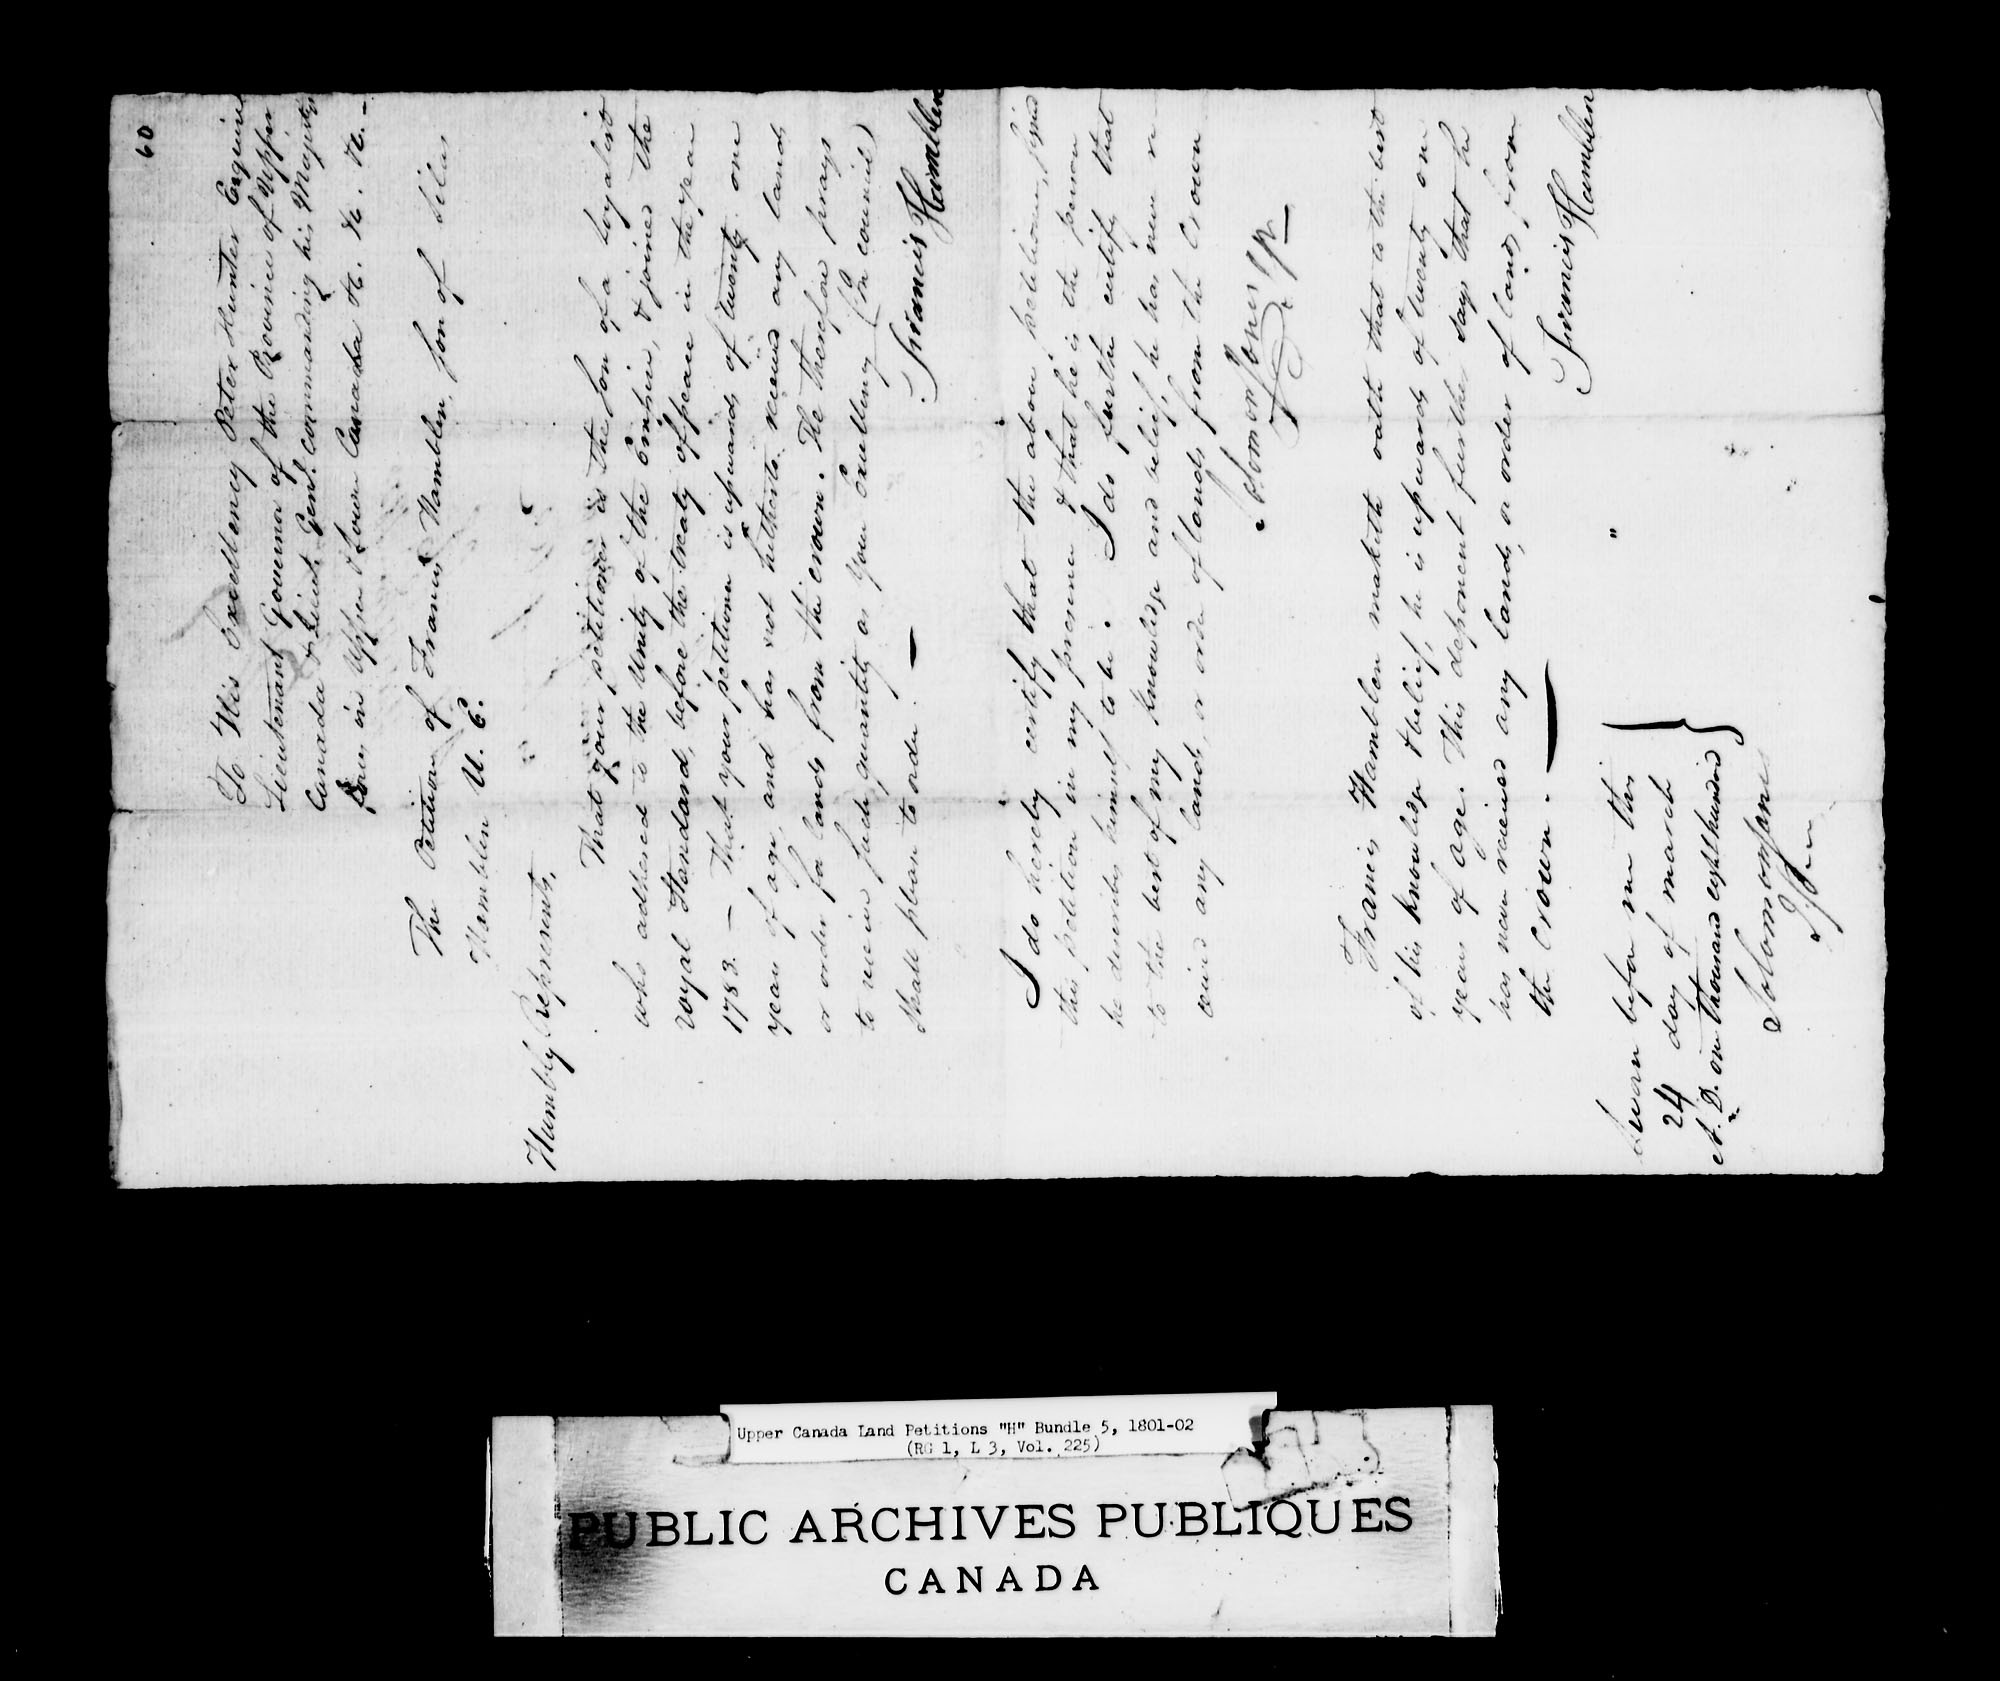 60
To His Excellency Peter Hunter Esquire
Lieutenant Governor of the Province of Upper
Canada & Lieut. Genl. commanding his Majestys
Forces in Upper & Lower Canada &c. &c. &c. -
The Petition of Francis Hamblen, Son of Silas
Hamblen U. E.
Humbly Represents,
That your petitioner is the Son of a loyalist
who adhered to the Unity of the Empire, & joined the
Royal Standard, before the treaty of peace in the year
1783. — That your petitioner is upwards of twenty one
years of age, and has not hitherto received any lands
or order for lands from the crown. He therefore prays
to receive such quantity as your Excellency (in council)
shall please to order. —
Francis Hamblen
I do hereby certify that the above petitioner, signed
this petition in my presence & that he is the person
he describes himself to be. I do further certify that
to the best of my knowledge and belief, he has never re
ceived any lands, or order of lands from the Crown
Solomon Jones J.P.
Francis Hamblen maketh oath that to the best
of his knowledge & belief, he is upwards of twenty one
years of age. This deponent further says that he
has never received any lands, or order of lands, from
the Crown. —
Francis Hamblen
Sworn before me this
24 day of march
A. D. one thousand eight hundred
Solomon Jones
Upper Canada Land Petitions "H" Bundle 5, 1801-02
(RG 1, L 3, Vol. 225)
PUBLIC ARCHIVES PUBLIQUES
CANADA